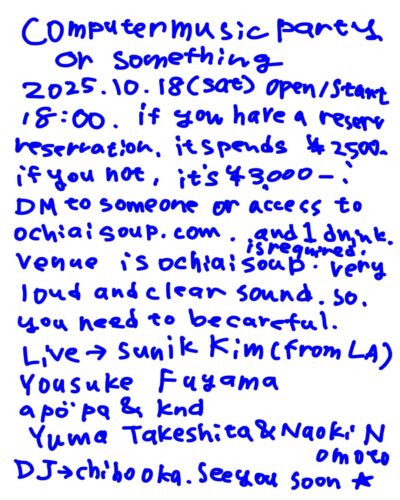 computermusic party
or something
2025.10.18(sat) open/start
18:00. if you have a reserv
reservation, it spends ¥2500-
if you not, it's ¥3,000-.
DM to someone or access to
ochiaisoup.com. and 1 drink.
is required.
venue is ochiaisoup. very
loud and clear sound. so.
you need to be careful.
Live→ Sunik Kim (from LA)
Yousuke Fuyama
apo̊pa & knd
Yuma Takeshita & Naoki N
omoto
DJ→chibooka. see you soon ☆